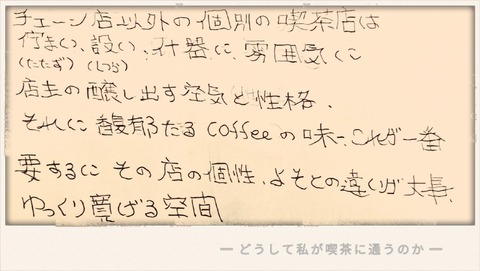 チェーン店以外の個別の喫茶店は
佇まい、設い、什器に、雰囲気に
(たたず) (しつら)
店主の醸し出す空気と性格、
それに馥郁たるcoffeeの味–これが一番
要するに その店の個性、よそとの違いが大事、
ゆっくり寛げる空間
― どうして私が喫茶に通うのか ―